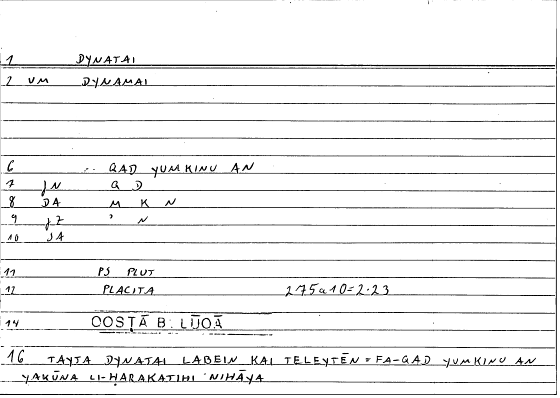 1 DYNATAI
2 VM DYNAMAI
6 .. QAD YUMKINU AN
7 JN Q D
8 DA M K N
9 JZ ' N
10 JA
11 PS PLUT
12 PLACITA 275a10=2.23
14 QOSṬĀ B. LŪQĀ
16 TAYTA DYNATAI LABEIN KAI TELEYTĒN = FA-QAD YUMKINU AN
YAKŪNA LI-ḤARAKATIHI NIHĀYA